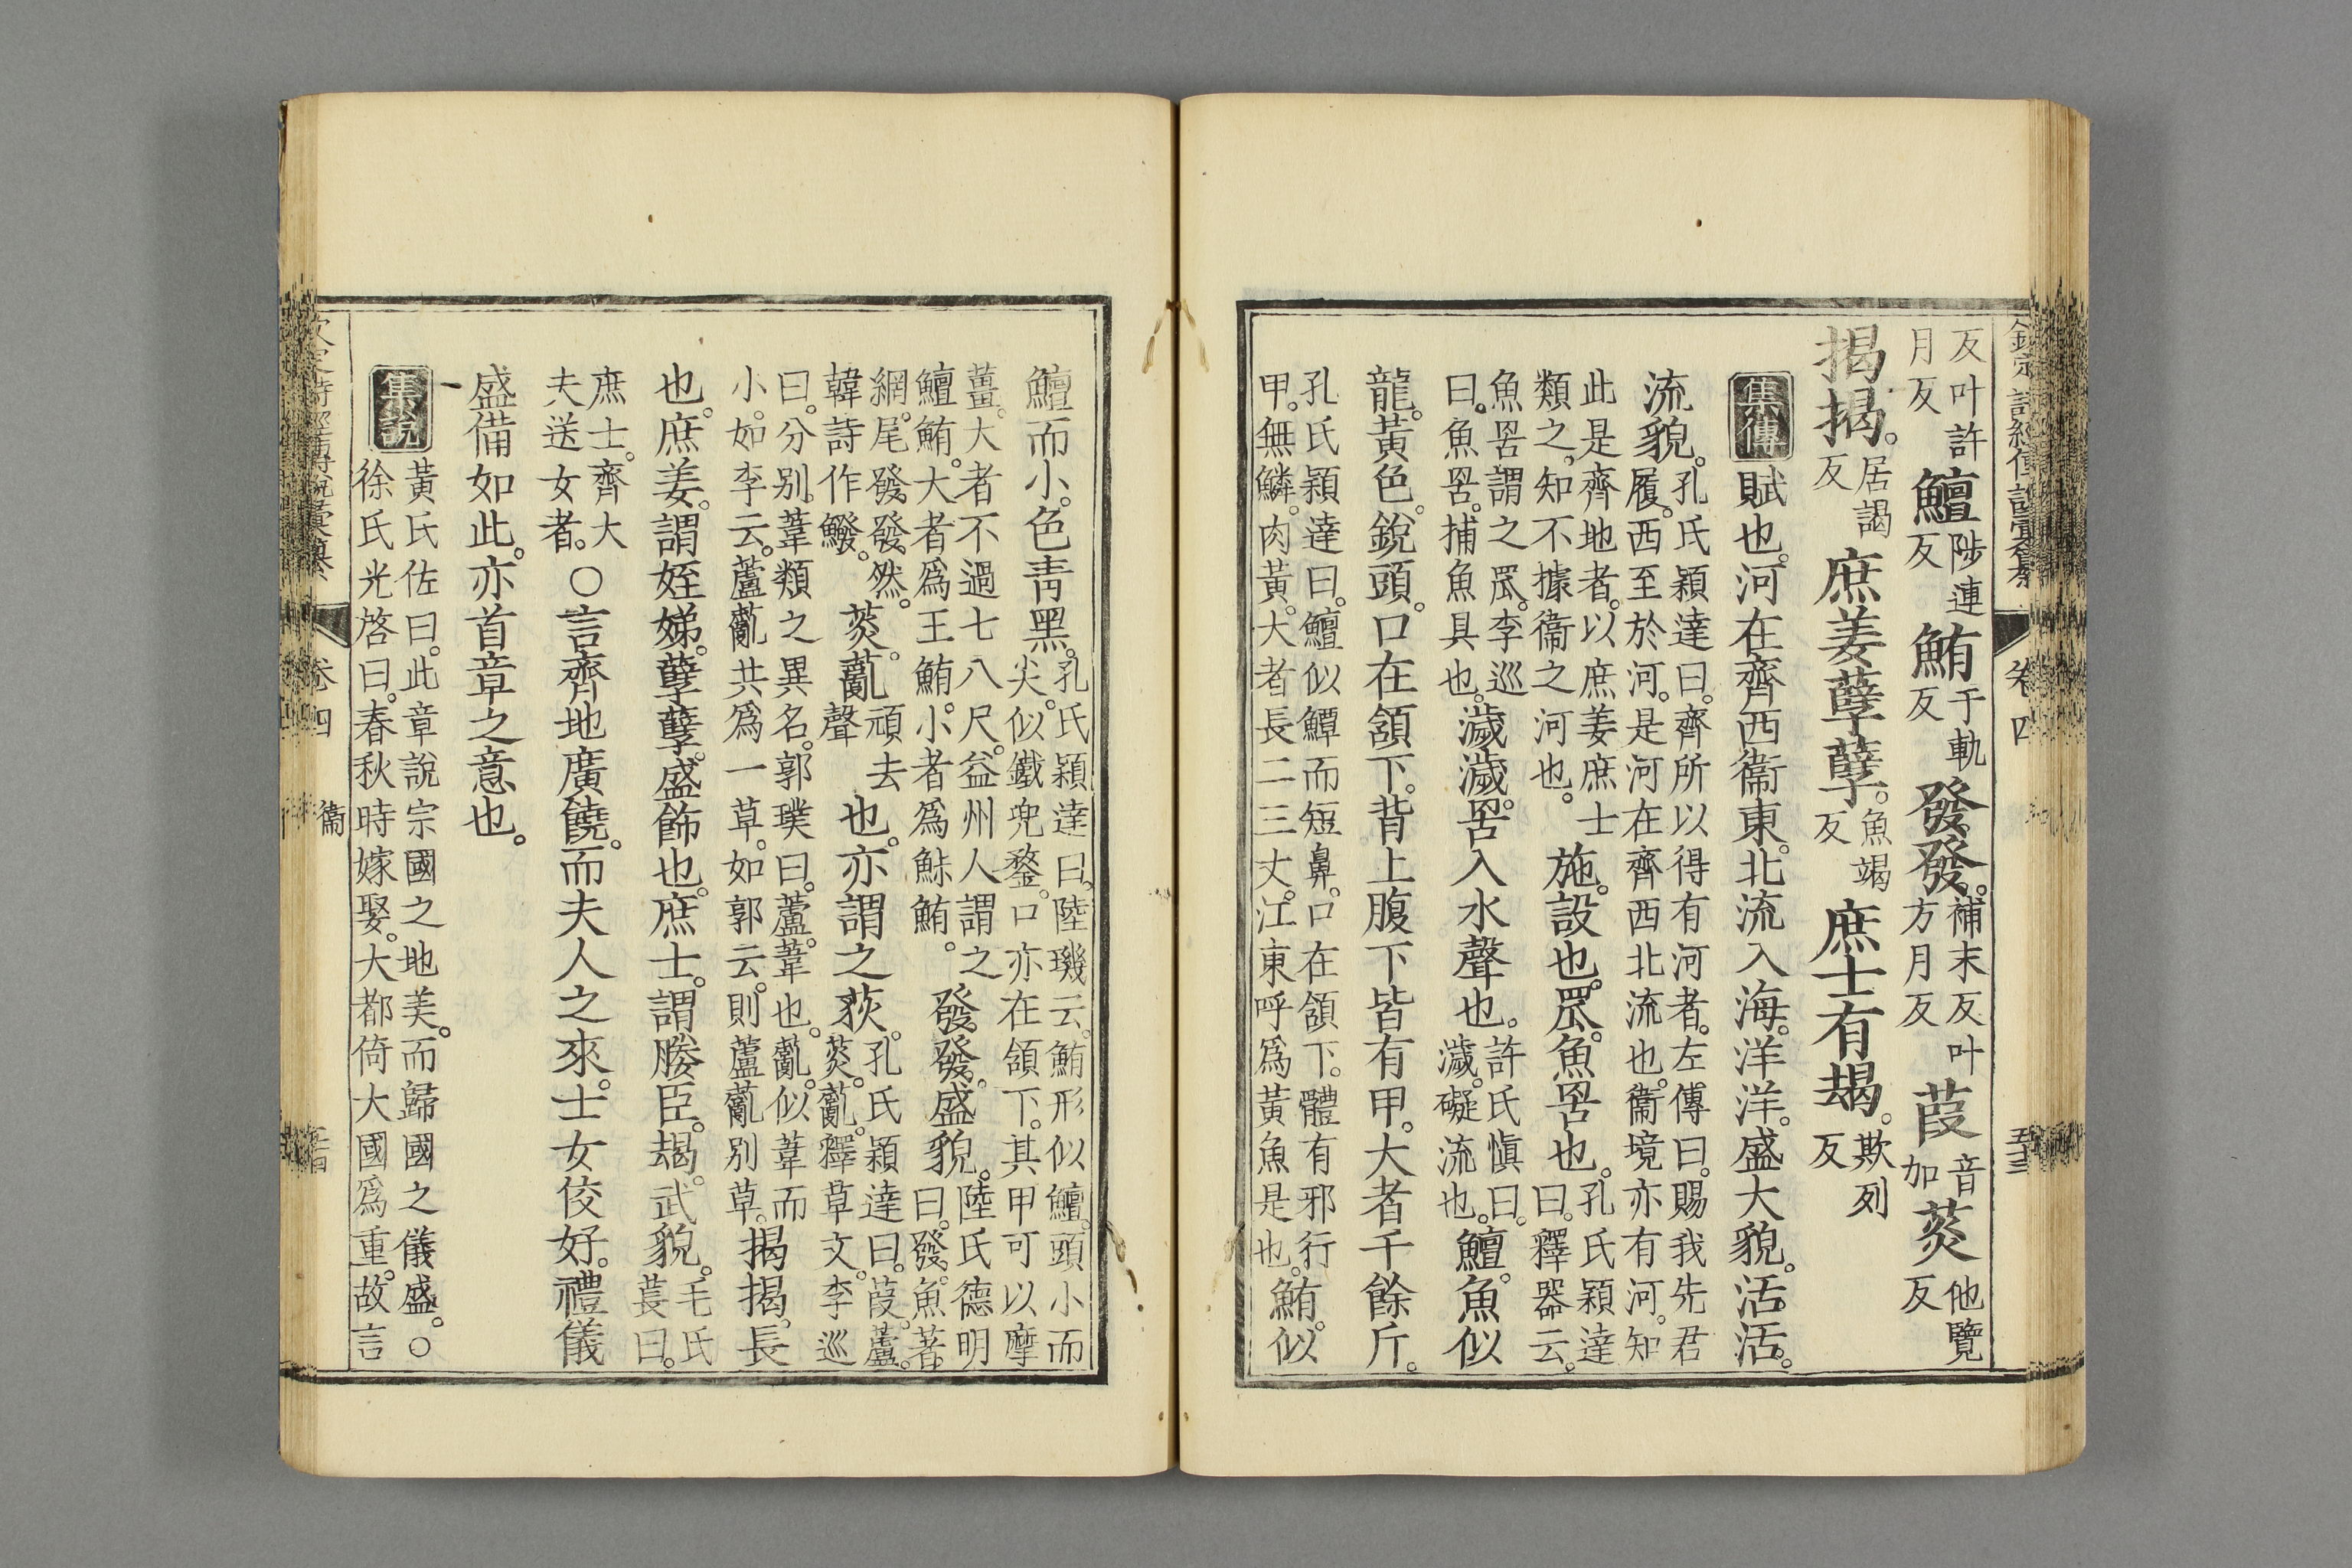 反叶許
月反
鱣
陟連
反
鮪
于軌
反
發發
補末反叶
方月反
葭
音
加
菼
他覽
反
揭揭
居謁
反
庶姜孽孽
魚竭
反
庶士有朅
欺列
反
集傳
賦也河在齊西衞東北流入海洋洋盛大貌活活
流貌
孔氏穎達曰齊所以得有河者左傳曰賜我先君
履西至於河是河在齊西北流也衞境亦有河知
此是齊地者以庶姜庶士
類之知不據衞之河也
施設也罛魚罟也
孔氏穎達
曰釋器云
魚罟謂之罛李巡
曰魚罟捕魚具也
濊濊罟入水聲也
許氏愼曰
濊礙流也
鱣魚似
龍黃色銳頭口在頷下背上腹下皆有甲大者千餘斤
孔氏穎達曰鱣似鱏而短鼻口在頷下體有邪行
甲無鱗肉黃大者長二三丈江東呼爲黃魚是也
鮪似
卷四
鱣而小色靑黑
孔氏穎達曰陸璣云鮪形似鱣頭小而
尖似鐵兜鍪口亦在頷下其甲可以摩
薑大者不過七八尺益州人謂之
鱣鮪大者爲王鮪小者爲鮛鮪
發發盛貌
陸氏德明
曰發魚著
網尾發發然
韓詩作鱍
菼薍
頑去
聲
也亦謂之荻
孔氏穎達曰葭蘆
菼薍釋草文李巡
曰分別葦類之異名郭璞曰蘆葦也薍似葦而
小如李云蘆薍共爲一草如郭云則蘆薍別草
揭揭長
也庶姜謂姪娣孽孽盛飾也庶士謂媵臣朅武貌
毛氏
萇曰
庶士齊大
夫送女者
○言齊地廣饒而夫人之來士女佼好禮儀
盛備如此亦首章之意也
集說
黃氏佐曰此章說宗國之地美而歸國之儀盛○
徐氏光啓曰春秋時嫁娶大都倚大國爲重故言
卷四
衞